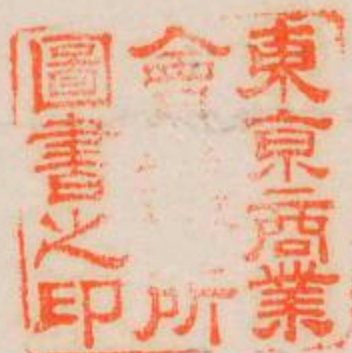 東京商業
會 所
圖書之印